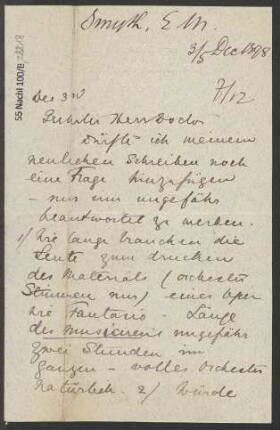 Smyth, E. M.
3/5 Dec 1898
7/12
55 Nachl 100/B
Dec 3rd
Geehrter Herr Doctor
Dürfte ich meinem
neulichen Schreiben noch
eine Frage hinzufügen
– nur um ungefähr
beantwortet zu werden.
1/ Wie lange brauchen die
Leute zum drucken
des Materials (orchester
Stimmen nur) eines Oper
wie Fantasio – Länge
des musicirens ungefähr
zwei Stunden im
ganzen – volles Orchester
natürlich. 2/ Würde